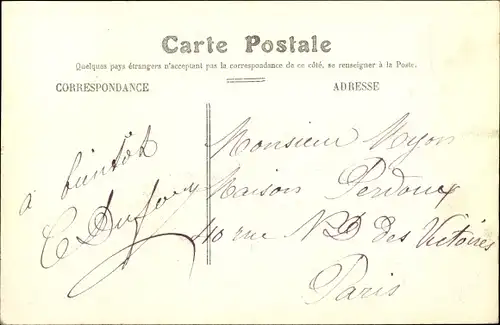 Carte Postale
Quelques pays étrangers n'acceptant pas la correspondance de ce côté, se renseigner à la Poste.
CORRESPONDANCE
ADRESSE
à bientôt
E Dufour
Monsieur Myon
Maison Perdoux
40 rue ND des Victoires
Paris